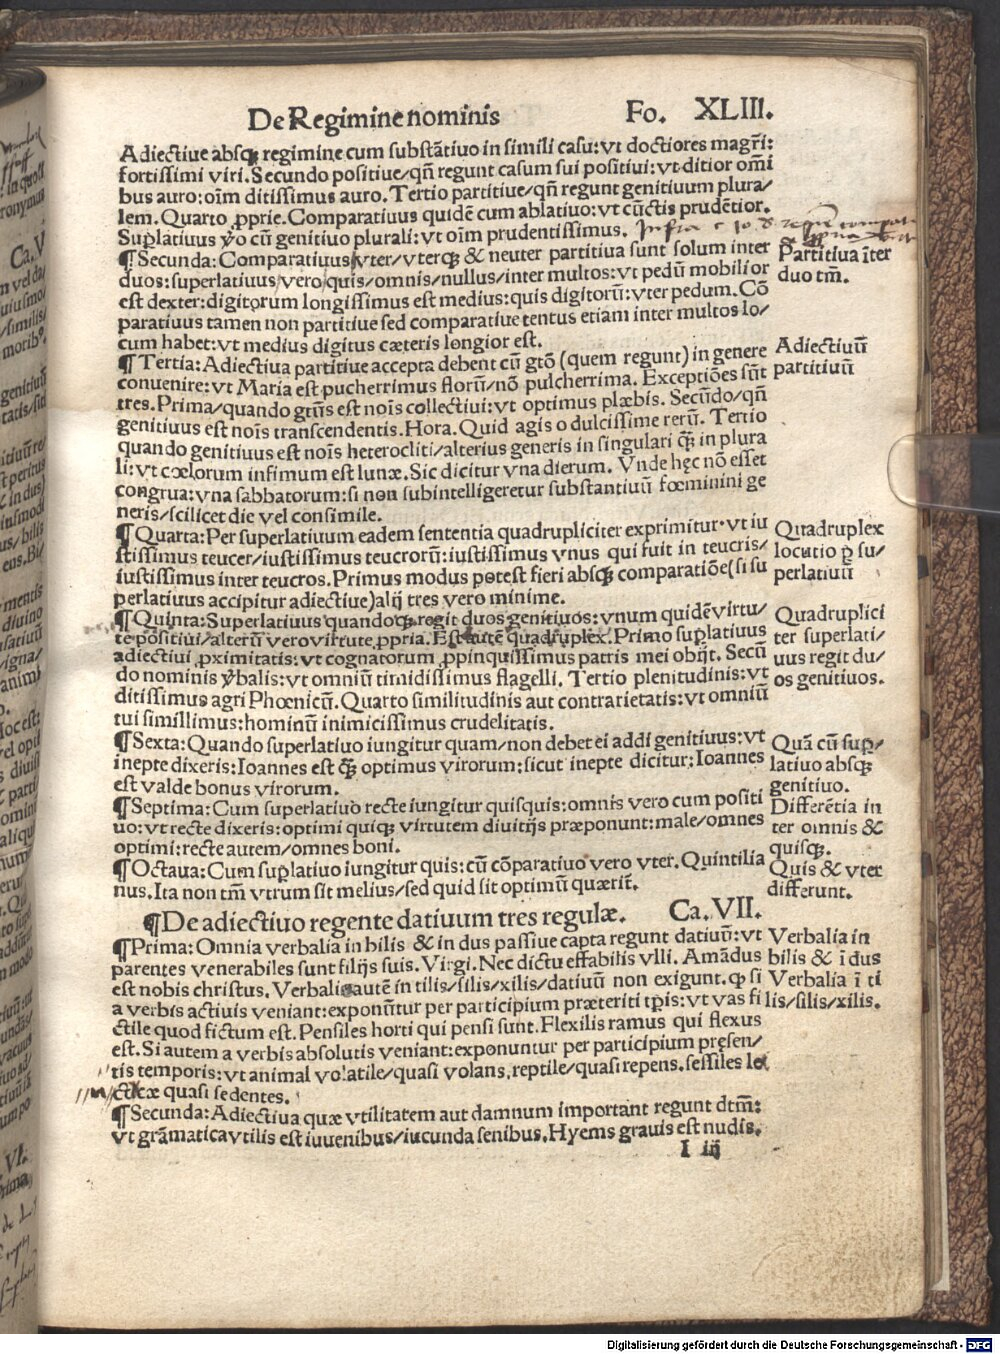 De Regimine nominis Fo. XLIII.
Adiectiue absq; regimine cum substātiuo in simili casu: vt doctiores magr̄i:
fortissimi viri. Secundo positiue/qn̄ regunt casum sui positiui: vt ditior om̄i
bus auro: oīm ditissimus auro. Tertio partitiue/qn̄ regunt genitiuum plura/
lem. Quarto ꝓprie. Comparatiuus quidē cum ablatiuo: vt cūctis prudētior.
Suꝑlatiuus v̊o cū genitiuo plurali: vt oīm prudentissimus.
¶ Secunda: Comparatiuus/vter/vterq; & neuter partitiua sunt solum inter
duos: superlatiuus/vero/quis/omnis/nullus/inter multos: vt pedū mobilior
est dexter: digitorum longissimus est medius: quis digitorū: vter pedum. Cō
paratiuus tamen non partitiue sed comparatiue tentus etiam inter multos lo/
cum habet: vt medius digitus cæteris longior est.
Partitiua īter
duo tm̄.
¶ Tertia: Adiectiua partitiue accepta debent cū gtō (quem regunt) in genere
conuenire: vt Maria est pucherrimus florū/nō pulcherrima. Exceptiōes sūt
tres. Prima/quando gtūs est noīs collectiui: vt optimus plæbis. Secūdo/qn̄
genitiuus est noīs transcendentis. Hora. Quid agis o dulcissime rerū. Tertio
quando genitiuus est noīs heterocliti/alterius generis in singulari q̄ꝫ in plura
li: vt cœlorum infimum est lunæ. Sic dicitur vna dierum. Vnde hęc nō esset
congrua: vna sabbatorum: si non subintelligeretur substantiuū fœminini ge
neris/scilicet die vel consimile.
Adiectiuū
partitiuū
¶ Quarta: Per superlatiuum eadem sententia quadrupliciter exprimitur. vt iu
stissimus teucer/iustissimus teucrorū: iustissimus vnus qui fuit in teucris/
iustissimus inter teucros. Primus modus potest fieri absq; comparatiōe (si su
perlatiuus accipitur adiectiue) alij tres vero minime.
Quadruplex
locutio ꝑ su/
perlatiuū
¶ Quinta: Superlatiuus quandoq; regit duos genitiuos: vnum quidē virtu/
te positiui/alterū vero virtute ꝓpria. Est autē quadruplex. Primo suꝑlatiuus
adiectiui ꝓximitatis: vt cognatorum ꝓpinquissimus patris mei obijt. Secū
do nominis v̊balis: vt omniū timidissimus flagelli. Tertio plenitudinis: vt
ditissimus agri Phœnicū. Quarto similitudinis aut contrarietatis: vt omniū
tui simillimus: hominū inimicissimus crudelitatis.
Quadruplici
ter superlati/
uus regit du/
os genitiuos.
¶ Sexta: Quando superlatiuo iungitur quam/non debet ei addi genitiuus: vt
inepte dixeris: Ioannes est q̄ꝫ optimus virorum: sicut inepte dicitur: Ioannes
est valde bonus virorum.
Quā cū suꝑ/
latiuo absq;
genitiuo.
¶ Septima: Cum superlatiuo recte iungitur quisquis: omnis vero cum positi
uo: vt recte dixeris: optimi quiq; virtutem diuitijs præponunt: male/omnes
optimi: recte autem/omnes boni.
Differētia in
ter omnis &
quisq;.
¶ Octaua: Cum suꝑlatiuo iungitur quis: cū cōparatiuo vero vter. Quintilia
nus. Ita non tm̄ vtrum sit melius/sed quid sit optimū quærit̄.
Quis & vter
differunt.
¶ De adiectiuo regente datiuum tres regulæ. Ca. VII.
¶ Prima: Omnia verbalia in bilis & in dus passiue capta regunt datiuū: vt
parentes venerabiles sunt filijs suis. Virgi. Nec dictu effabilis vlli. Amādus
est nobis christus. Verbalia autē in tilis/silis/xilis/datiuū non exigunt. ꝙ si
a verbis actiuis veniant: exponūtur per participium præteriti tp̄is: vt vas fi
ctile quod fictum est. Pensiles horti qui pensi sunt. Flexilis ramus qui flexus
est. Si autem a verbis absolutis veniant: exponuntur per participium pręsen/
tis temporis: vt animal volatile/quasi volans, reptile/quasi repens. sessiles le
cticæ quasi sedentes.
Verbalia in
bilis & ī dus
Verbalia ī ti
lis/silis/xilis.
¶ Secunda: Adiectiua quæ vtilitatem aut damnum important regunt dtm̄:
vt grāmatica vtilis est iuuenibus/iucunda senibus. Hyems grauis est nudis.
I iij
Digitalisierung gefördert durch die Deutsche Forschungsgemeinschaft - DFG